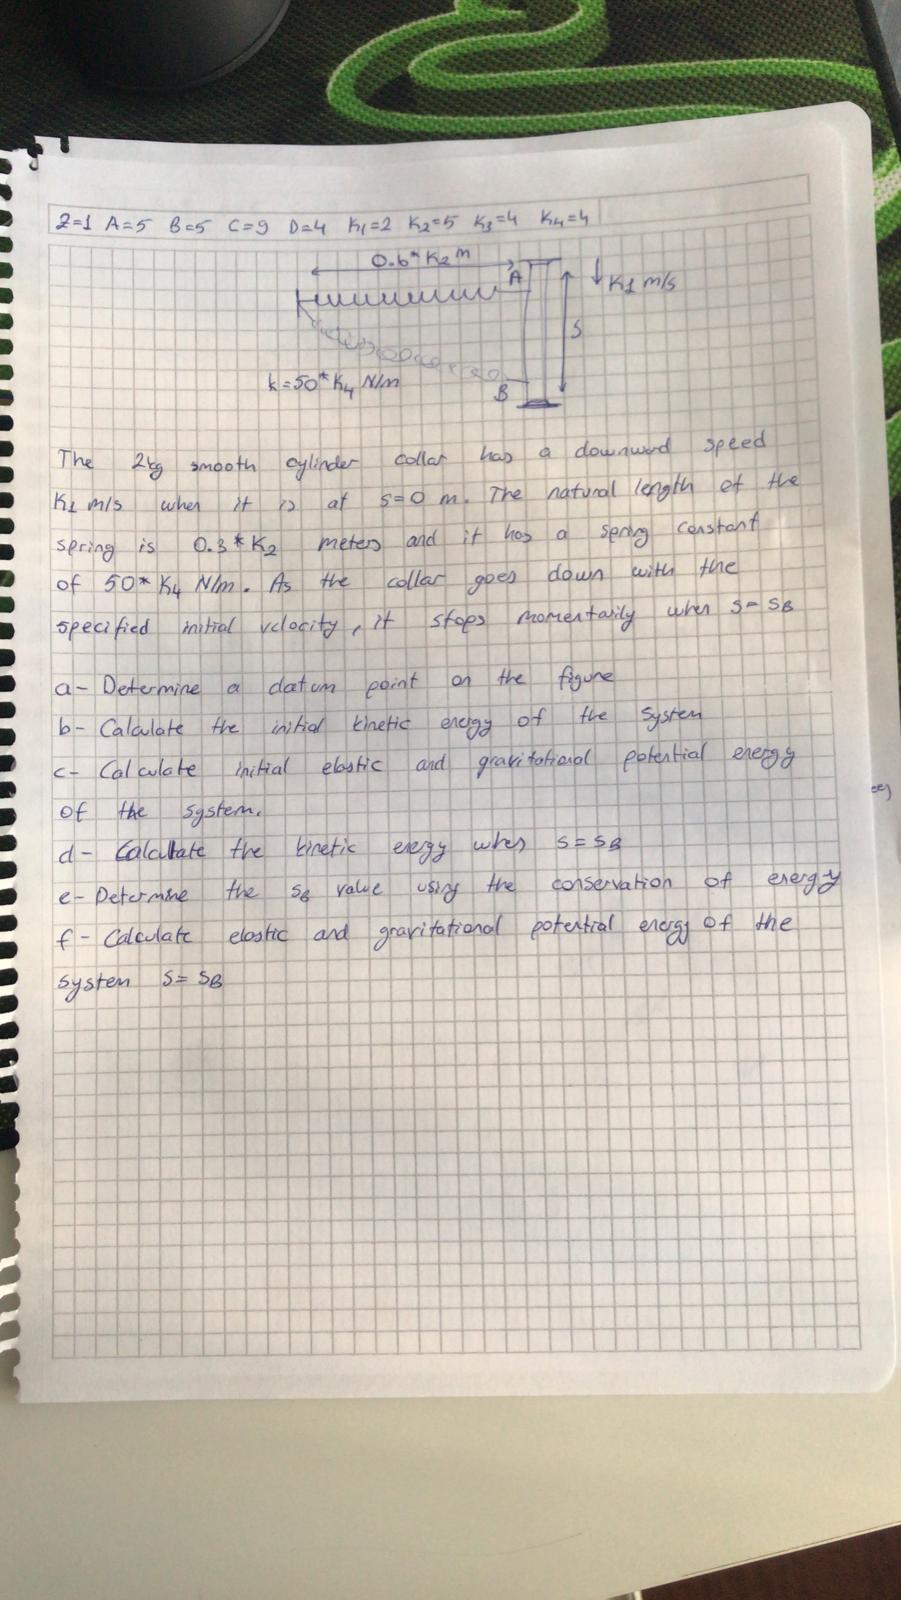 2=1 A=5 B=5 C=9 D=4 K1=2 K2=5 K3=4 K4=4
0.6*K2 m
A
K1 m/s
S
k=50*K4 N/m
B
The 2kg smooth cylinder collar has a downward speed
K1 m/s when it is at s=0 m. The natural length of the
spring is 0.3*K2 meters and it has a spring constant
of 50*K4 N/m. As the collar goes down with the
specified initial velocity, it stops momentarily when s=sB
a- Determine a datum point on the figure
b- Calculate the initial kinetic energy of the system
c- Calculate initial elastic and gravitational potential energy
of the system.
d- Calculate the kinetic energy when s=sB
e- Determine the sB value using the conservation of energy
f- Calculate elastic and gravitational potential energy of the
system s=sB